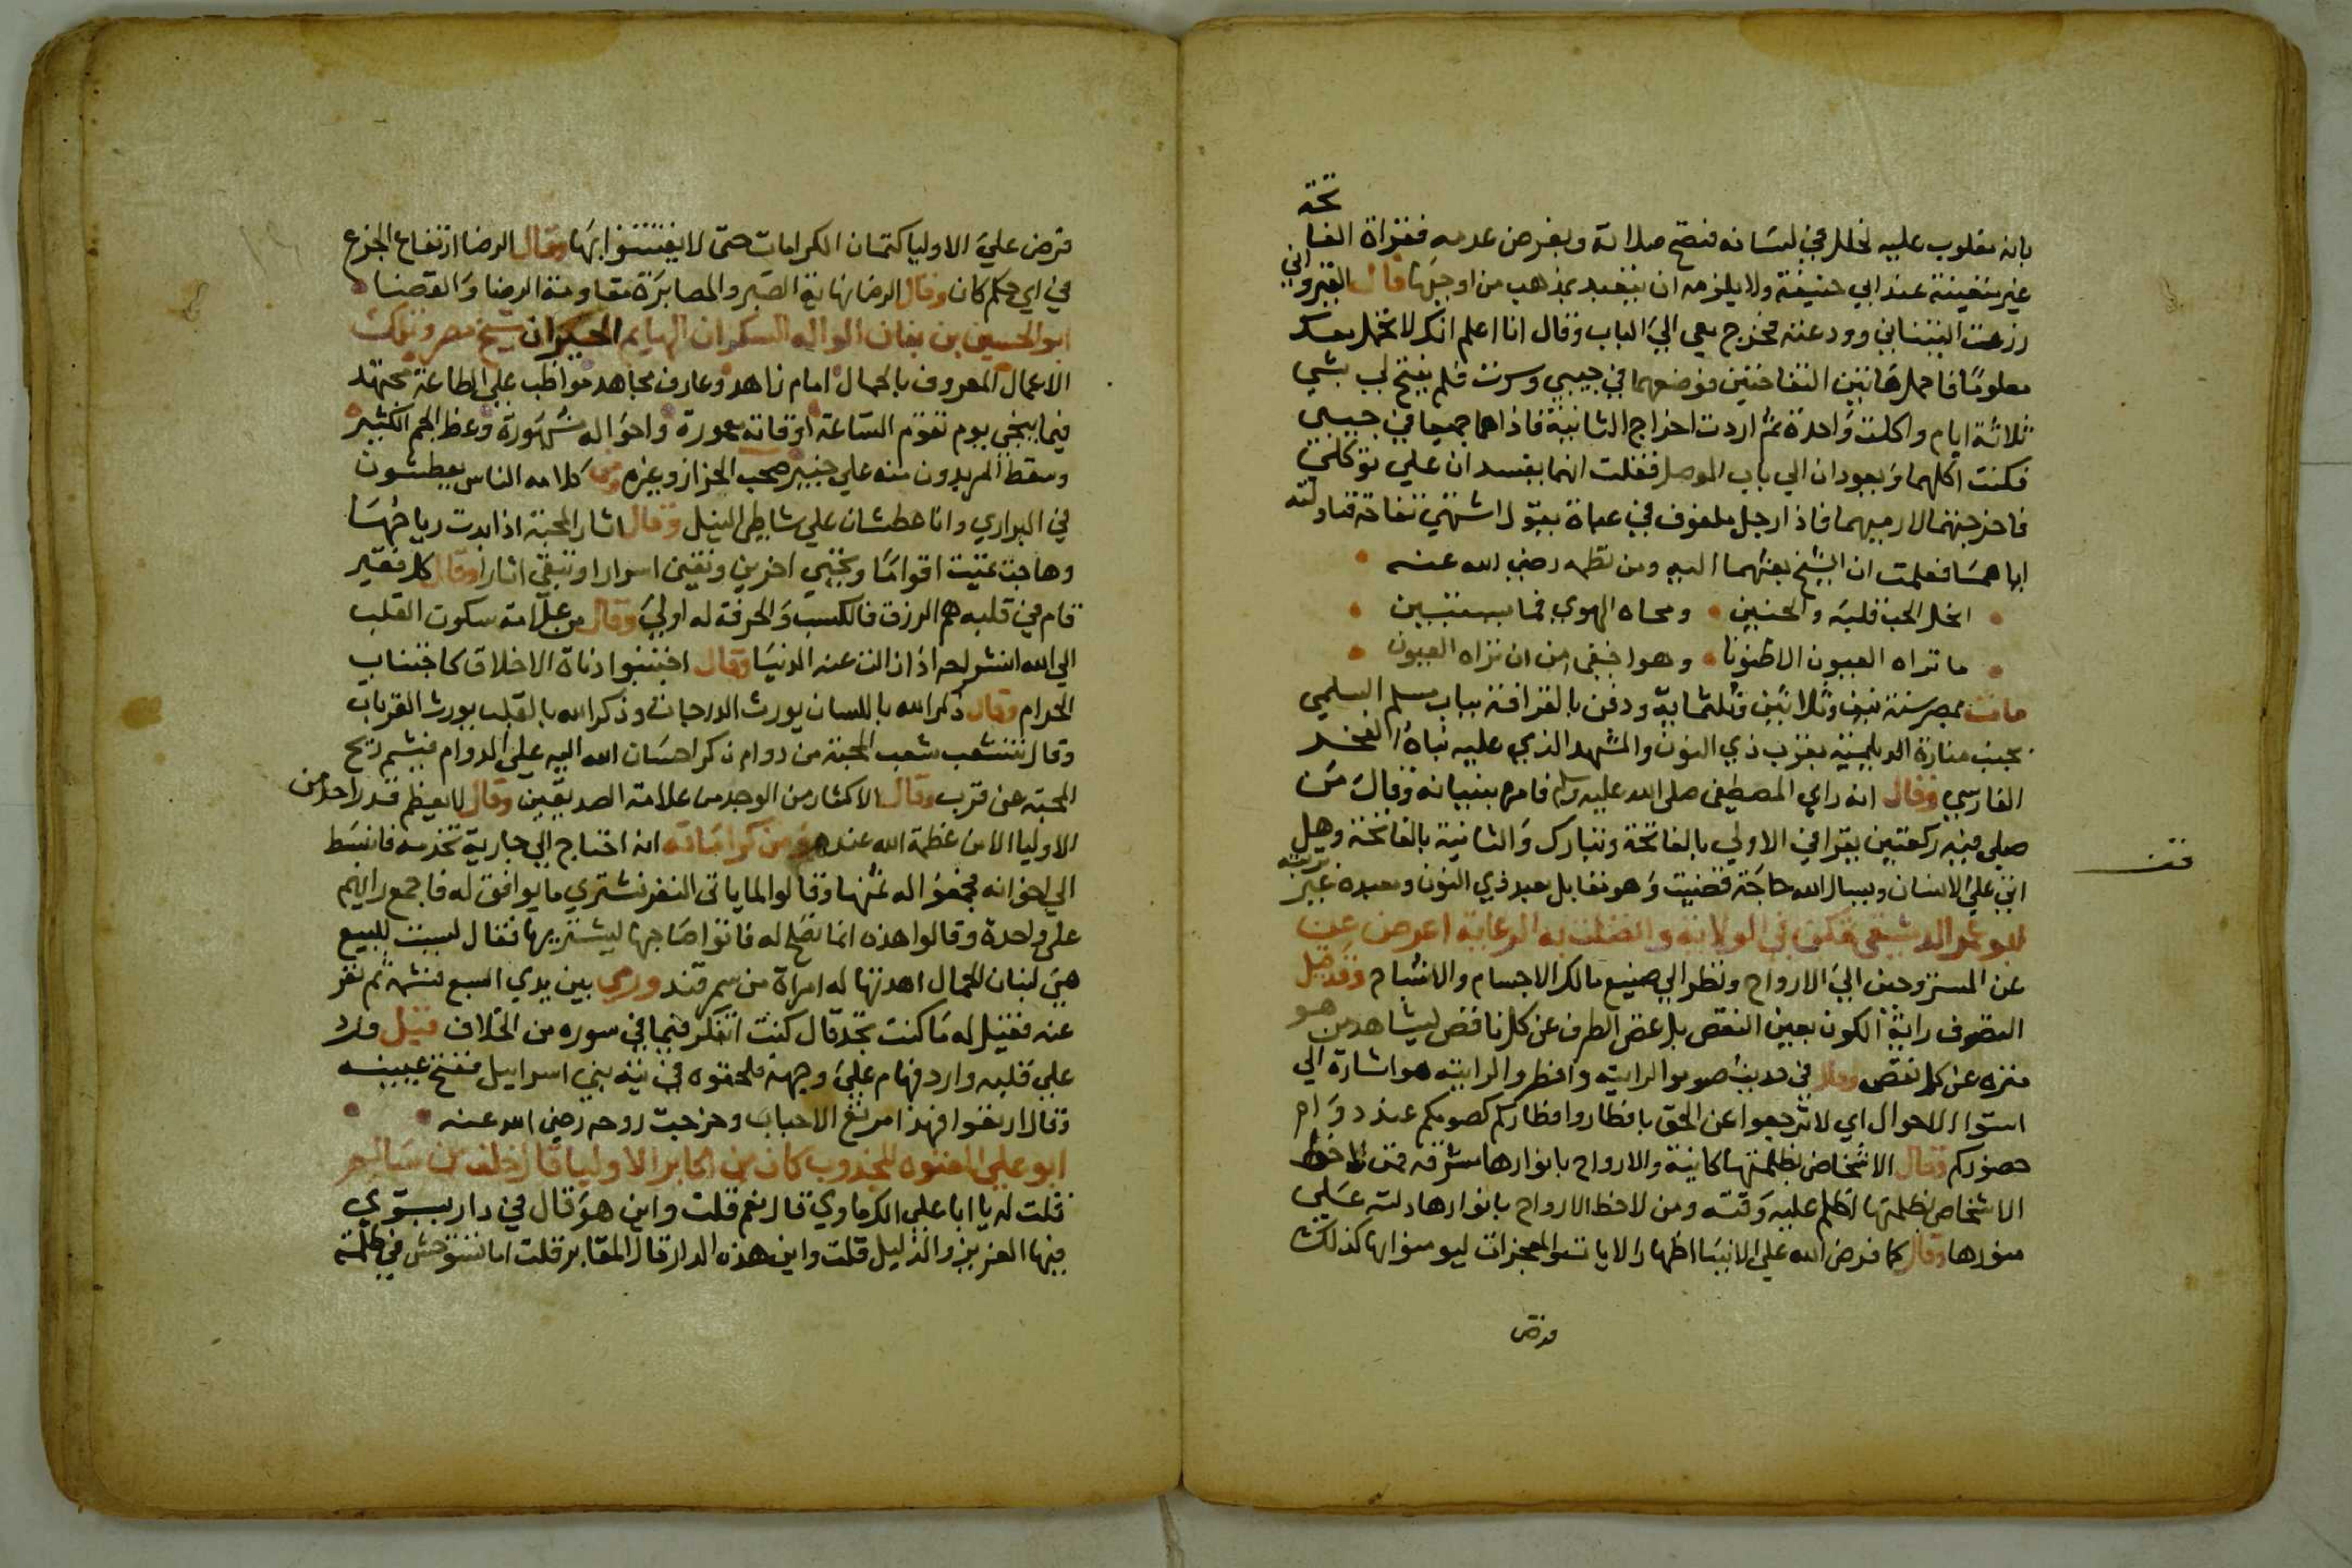 بانه مغلوب عليه لخلل في لسانه فتصح صلاته وبفرض عدمه فقراة الفا
تحة
غير متعينة عند ابي حنيفة ولا يلزمه ان يتقيد بمذهب من اوجبها قال القيرواني
زرعت التيناتي وودعته فخرج معي الي الباب وقال انا اعلم انك لا تحمل معك
معلوما فاحمل هاتين التفاحتين فوضعهما في جيبي وسرت فلم يفتح لي بشي
ثلاثة ايام واكلت واحدة ثم اردت اخراج الثانية فاذا هما جميعا في جيبي
فكنت اكلهما ويعودان الي باب الموصل فقلت انهما يفسدان علي توكلي
فاخرجتهما لارميهما فاذا رجل ملفوف في عباة يقول اشتهي تفاحة فناولته
اياهما فعلمت ان الشيخ بعثهما اليه ومن نظمه رضي الله عنه
انحل الحب قلبه والحنين ومحاه الهوي فما يستبين
ما تراه العيون الا ظنونا وهو اخفي من ان تراه العيون
مات بمصر سنة نيف وثلاثين وثلثماية ودفن بالقرافة بباب مسلم السلمي
بجنب منارة الديلمية بقرب ذي النون والمشهد الذي عليه بناه الفخر
الفارسي وقال انه راي المصطفي صلي الله عليه وسلم فامره ببنيانه وقال من
صلي فيه ركعتين يقرا في الاولي بالفاتحة وتبارك والثانية بالفاتحة وهل
اتي علي الانسان ويسال الله حاجته قضيت وهو يقابل بعيد ذي النون وبعيده غير
قف
ابو عمر الدمشقي تمكن في الولاية واتصلت به الرعاية اعرض عن
عن المستروحين الي الارواح ونظر الي صنيع مالك الاجسام والاشباح وقد قيل
التصوف راية الكون بعين النقص بل غض الطرف عن كل ناقص ليشاهد من هو
منزه عن كل نقص وقال في حديث صوموا لرايته وافطروا لرايته هو اشارة الي
استواء الاحوال اي لا ترجعوا عن الحق بافطار وافطاركم كصومكم عند دوام
حضوركم وقال الاشخاص بظلمتها كاينة والارواح بانوارها مشرقة فمن لاحظ
الاشخاص بظلمتها اظلم عليه وقته ومن لاحظ الارواح بانوارها دلته علي
منورها وقال كما فرض الله علي الانبيا اظهار الايات والمعجزات ليومنوا بها كذلك
فرض
فرض علي الاوليا كتمان الكرامات حتي لا يفتتنوا بها وقال الرضا ارتفاع الجزع
في اي حكم كان وقال الرضا نهاية الصبر والمصابرة مقاومة الرضا والقضا
ابو الحسين بن بنان الواله السكران الهايم الحيران شيخ مصر وتمكث
الاعمال المعروف بالحمال امام زاهد وعارف مجاهد مواظب علي الطاعة مجتهد
فيما ينجي يوم تقوم الساعة اوقاته معمورة واحواله مشهورة وعظ الجم الكثير
وسقط المريدون منه علي خبير صحب الخراز وغيره ومن كلامه الناس يعطشون
في البراري وانا عطشان علي شاطي النيل وقال اثار المحبة اذا بدت رياحها
وهاجت تميت اقواما وتحيي اخرين وتفني اسرارا وتبقي اثارا وقال كل فقير
قام في قلبه هم الرزق فالكسب والحرفة له اولي وقال من علامة سكون القلب
الي الله ان ينشرح اذا زالت عنه الدنيا وقال اجتنبوا دناة الاخلاق كاجتناب
الحرام وقال ذكر الله باللسان يورث الدرجات وذكر الله بالقلب يورث القربات
وقال تتشعب شعب المحبة من دوام ذكر احسان الله اليه علي الدوام فيشم ريح
المحبة عن قرب وقال الاكثار من الوجد من علامة الصديقين وقال لا يعظم قدر احد من
الاوليا الا من عظمة الله عنده ومن كراماته انه احتاج الي جارية تخدمه فانبسط
الي اخوانه فجمعوا له ثمنها وقالوا لما ياتي النفر نشتري ما يوافق له فاجمع رايهم
علي واحدة وقالوا هذه انما تصلح له فاتوا صاحبها ليشتريها فقال ليست للبيع
هي لبنان الحمال اهدتها له امراة من سمرقند ورمي بين يدي السبع فشمه ثم نفر
عنه فقيل له ما كنت تجد قال كنت اتفكر فيما في سوره من الخلاف قيل ورد
علي قلبه وارد فهام علي وجهه فلحقوه في تيه بني اسراييل ففتح عينيه
وقال ارتعوا فهذا مرتع الاحباب وخرجت روحه رضي الله عنه
ابو علي المعتوه المجذوب كان من اكابر الاوليا قال خلف بن سالم
قلت له يا ابا علي الك ماوي قال نعم قلت واين هو قال في دار يستوي
فيها العزيز والذليل قلت واين هذه الدار قال المقابر قلت اما تستوحش في ظلمة